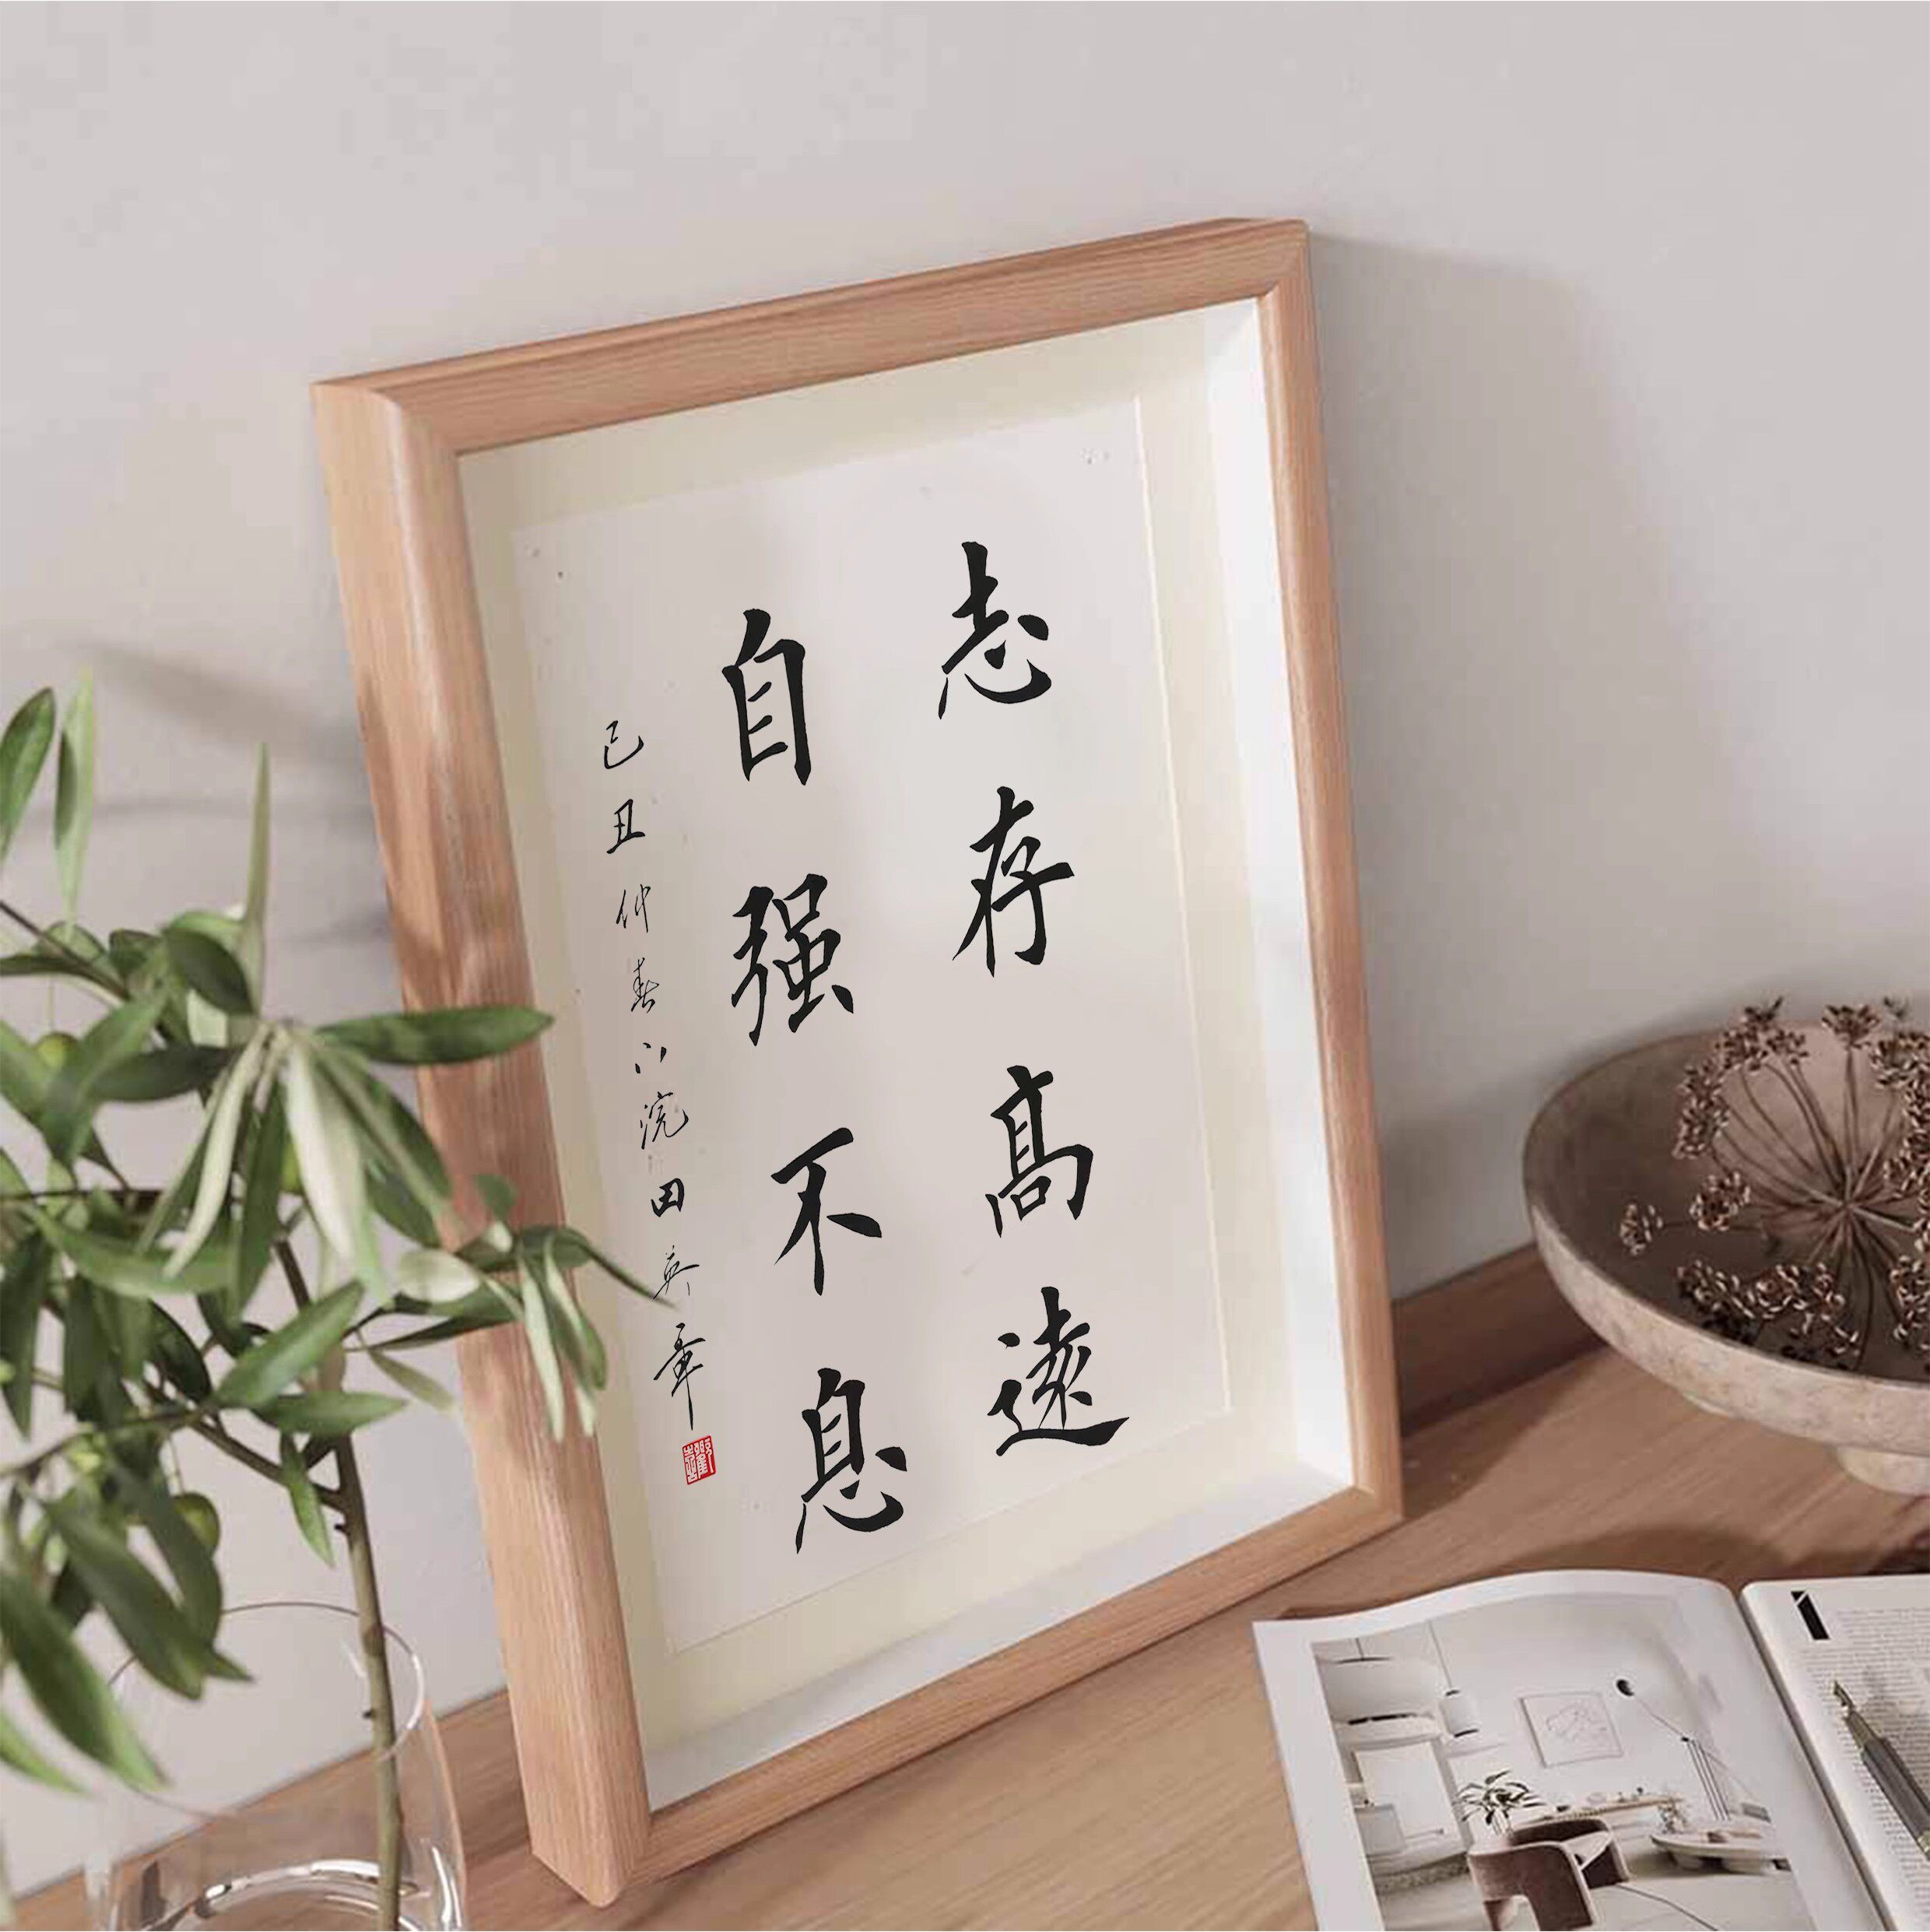 志存高遠
自强不息
己丑仲春 田英章